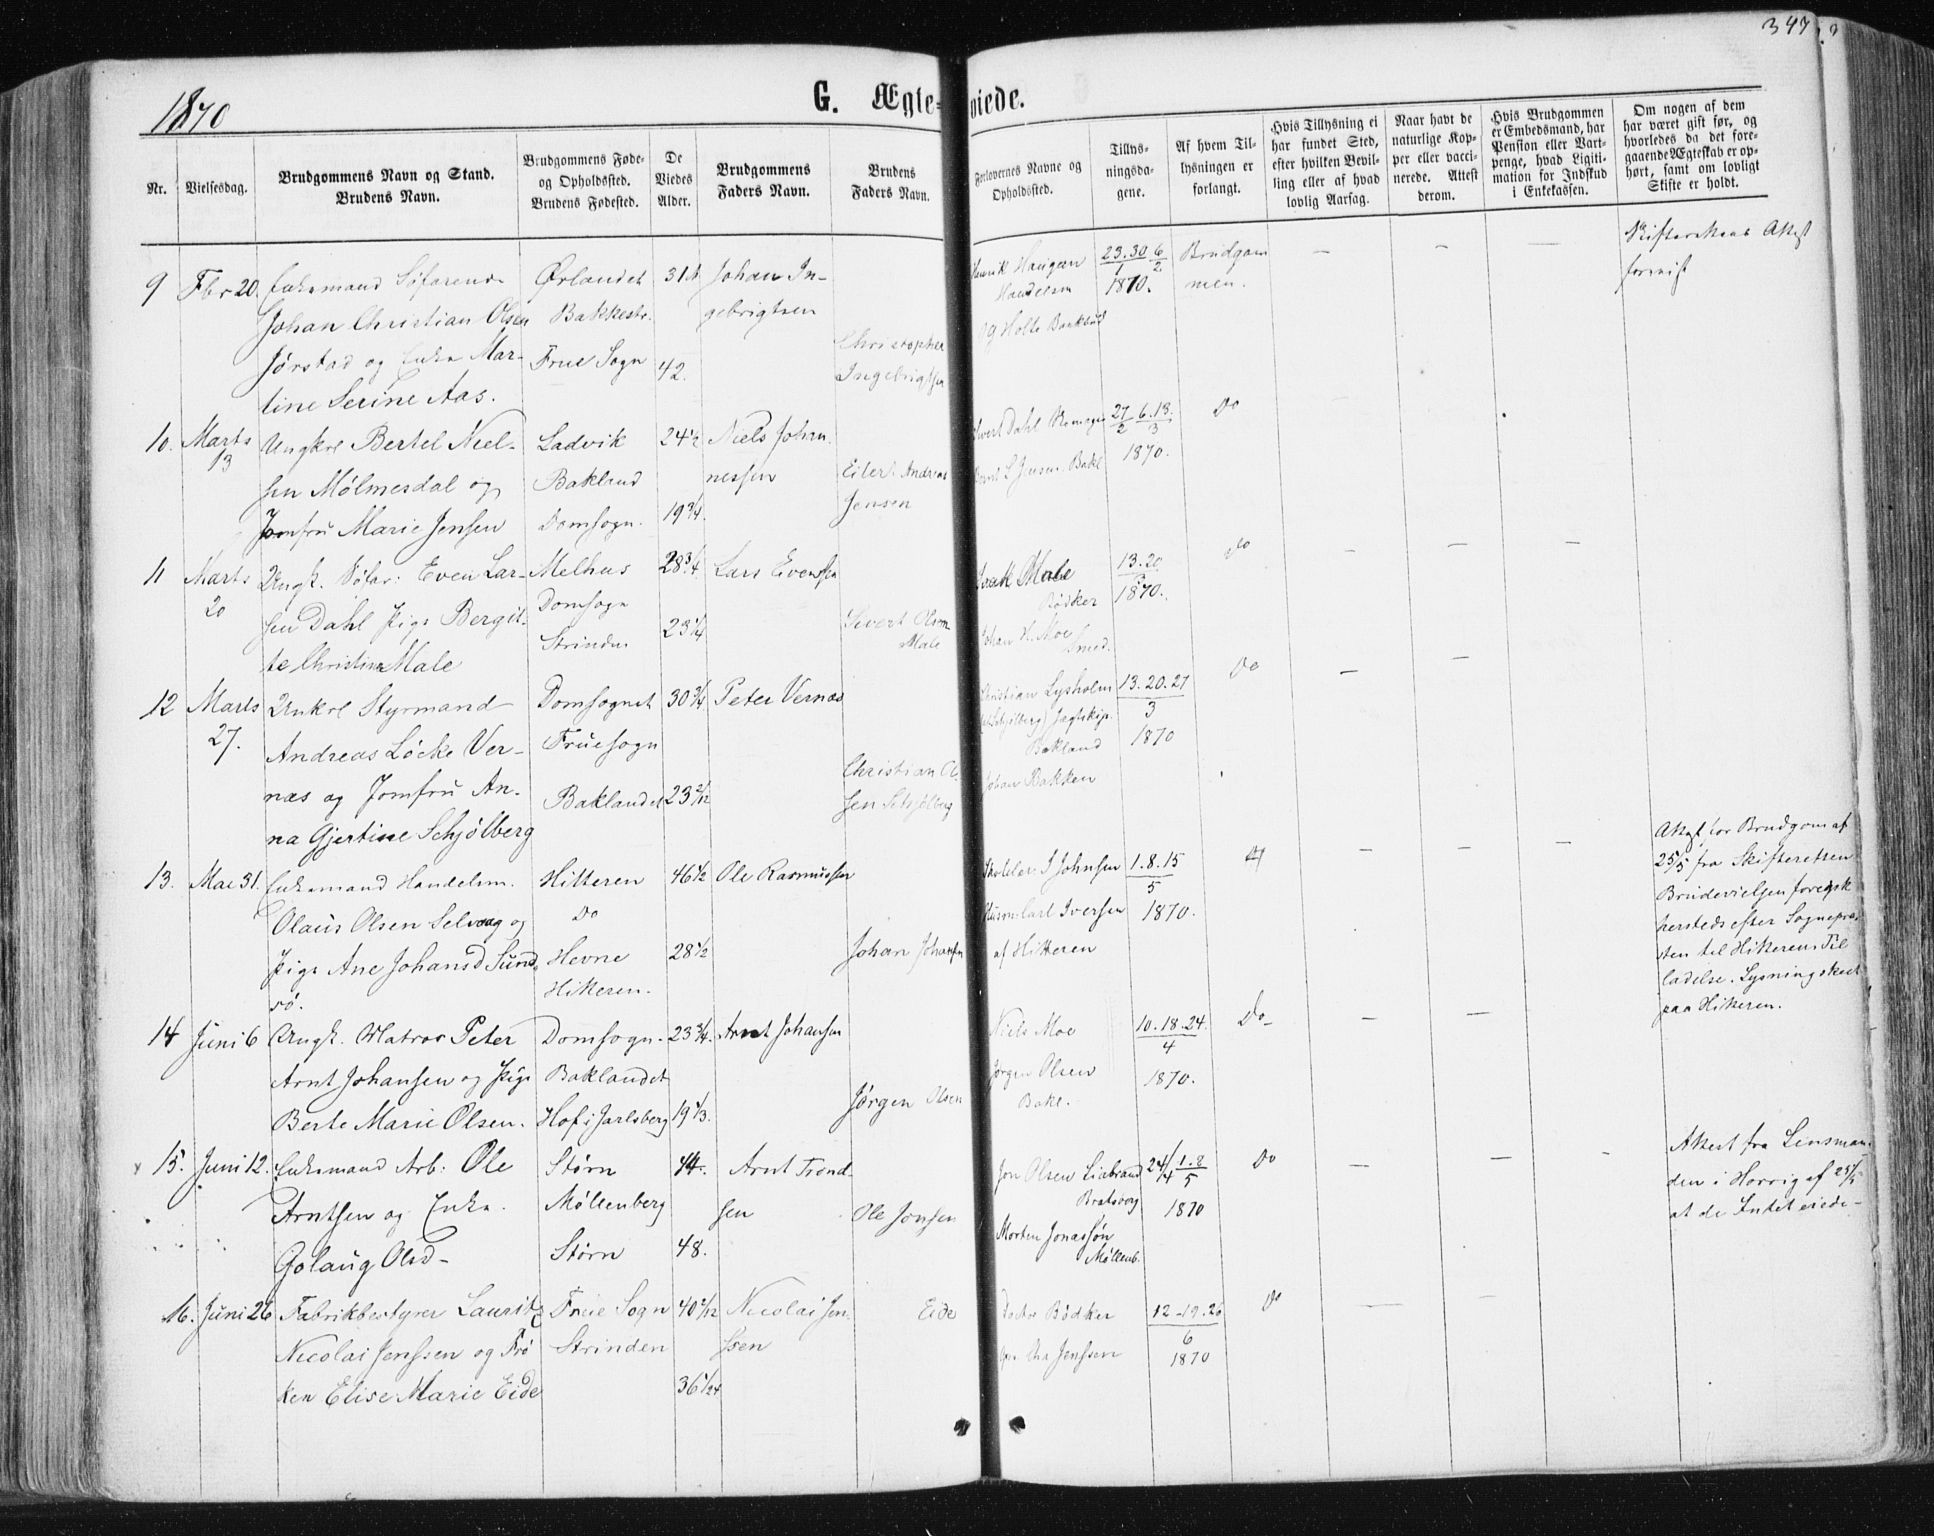 347
1870
G. Ægte=viede.
Nr.
Vielsesdag.
Brudgommens Navn og Stand.
Brudens Navn.
Brudgommens Føde-
og Opholdssted.
Brudens Fødested.
De
Viedes
Alder.
Brudgommens
Faders Navn.
Brudens
Faders Navn.
Forlovernes Navne og
Opholdssted.
Tillys-
ningsda-
gene.
Af hvem Til-
lysningen er
forlangt.
Hvis Tillysning ei
har fundet Sted,
efter hvilken Bevil-
ling eller af hvad
lovlig Aarsag.
Naar havt de
naturlige Kop-
per eller vacci-
nerede. Attest
derom.
Hvis Brudgommen
er Embedsmand, har
Pension eller Vart-
penge, hvad Ligiti-
mation for Indskud
i Enkekassen.
Om nogen af dem
har været gift før, og
hvorledes da det fore-
gaaende Ægteskab er op-
hørt, samt om lovligt
Skifte er holdt.
9 Fbr 20. Enkemand Søfarende
Johan Christian Olsen
Jørstad og Enke Mar-
tine Serine Aas.
Ørlandet
Bakkestr.
Frue Sogn
42.
Johan In-
gebrigtsen
Christopher
Ingebrigtsen
Henrik Haugan
Handelsm
og Holte Bakland
23.30 6
1 2
1870.
Brudgom
men.
Skifterettens Attest
forevist
10. Marts
13
Ungkrl Bertel Niel-
sen Mølmesdal og
Jomfru Marie Jensen
Ladvik
Bakland
Domsogn.
24½
19¾.
Niels Johan
nessen
Eilert Andreas
Jensen
Dahl
Jensen Bakl
27 6.13.
2 3
1870.
Do
11 Marts
20
Ungk. Søfar: Even Lar-
sen Dahl Pige Bergit-
te Christine Male
Melhus
Domsogn
Strinden
28¾
23¼
Lars Evensen
Sivert Olsen
Male
Isak Male
Bødker
Johan H. Moe
Smed.
13.20
3
1870.
Do
12 Marts
27.
Unkrl Styrmand
Andreas Løcke Ver-
næs og Jomfru An-
na Gjertine Schjølberg
Domsognet
Fruesogn
Baklandet
30¾
Peter Vernæs
Christian Ol
sen Schjølberg
Christian Lysholm
Schjølberg) Jagtskip.
Bakland
Johan Bakken
13.20.27
3
1870
Do
13. Mai 31. Enkemand Handelsm.
Olaus Olsen Selvaag og
Pige Ane Johansd Sund
sø.
Hitteren
Do
Hevne
Hitteren.
46½
28½
Ole Rasmussen
Johan Johansen
Skolelær. I Johnsen
Husm: Carl Iversen
af Hitteren
1.8.15
5
1870.
Attest for Brudgom af
25/5 fra Skifteretten
Brudevielsen foregik
hersteds efter Sognepræ-
sten til Hitterens Til
ladelse. Lysning skeet
paa Hitteren.
14 Juni 6 Ungk. Matros Peter
Arnt Johansen og Pige
Berte Marie Olsen.
Domsogn.
Baklandet
Hof i Jarlsberg
23¾.
19⅓.
Arnt Johansen
Jørgen Olsen
Niels Moe
Jørgen Olsen
Bakl.
10.18.24.
4
1870.
Do
15. Juni 12. Enkemand Arb: Ole
Arntsen og Enke
Golaug Olsd-
Størn
Møllenberg
Størn
44.
48.
Arnt Trond
sen
Ole Jonsen
Jon Olsen Liabrand
Bratsverg
Morten Jonassøn
Møllenb.
24/4 1.8
5
1870
Do
Attest fra Lensman-
den i Horrig af 25/5
at de Intet eiede-
16. Juni 26 Fabrikbestyrer Lauritz
Nicolai Jenssen og Frø
ken Elise Marie Eide
Frue Sogn
Strinden
40 2/12
36 1/24
Nicolai Jen-
ssen
Eide
Doctor Bødker
Jenssen
12-19.26
6
1870
Do